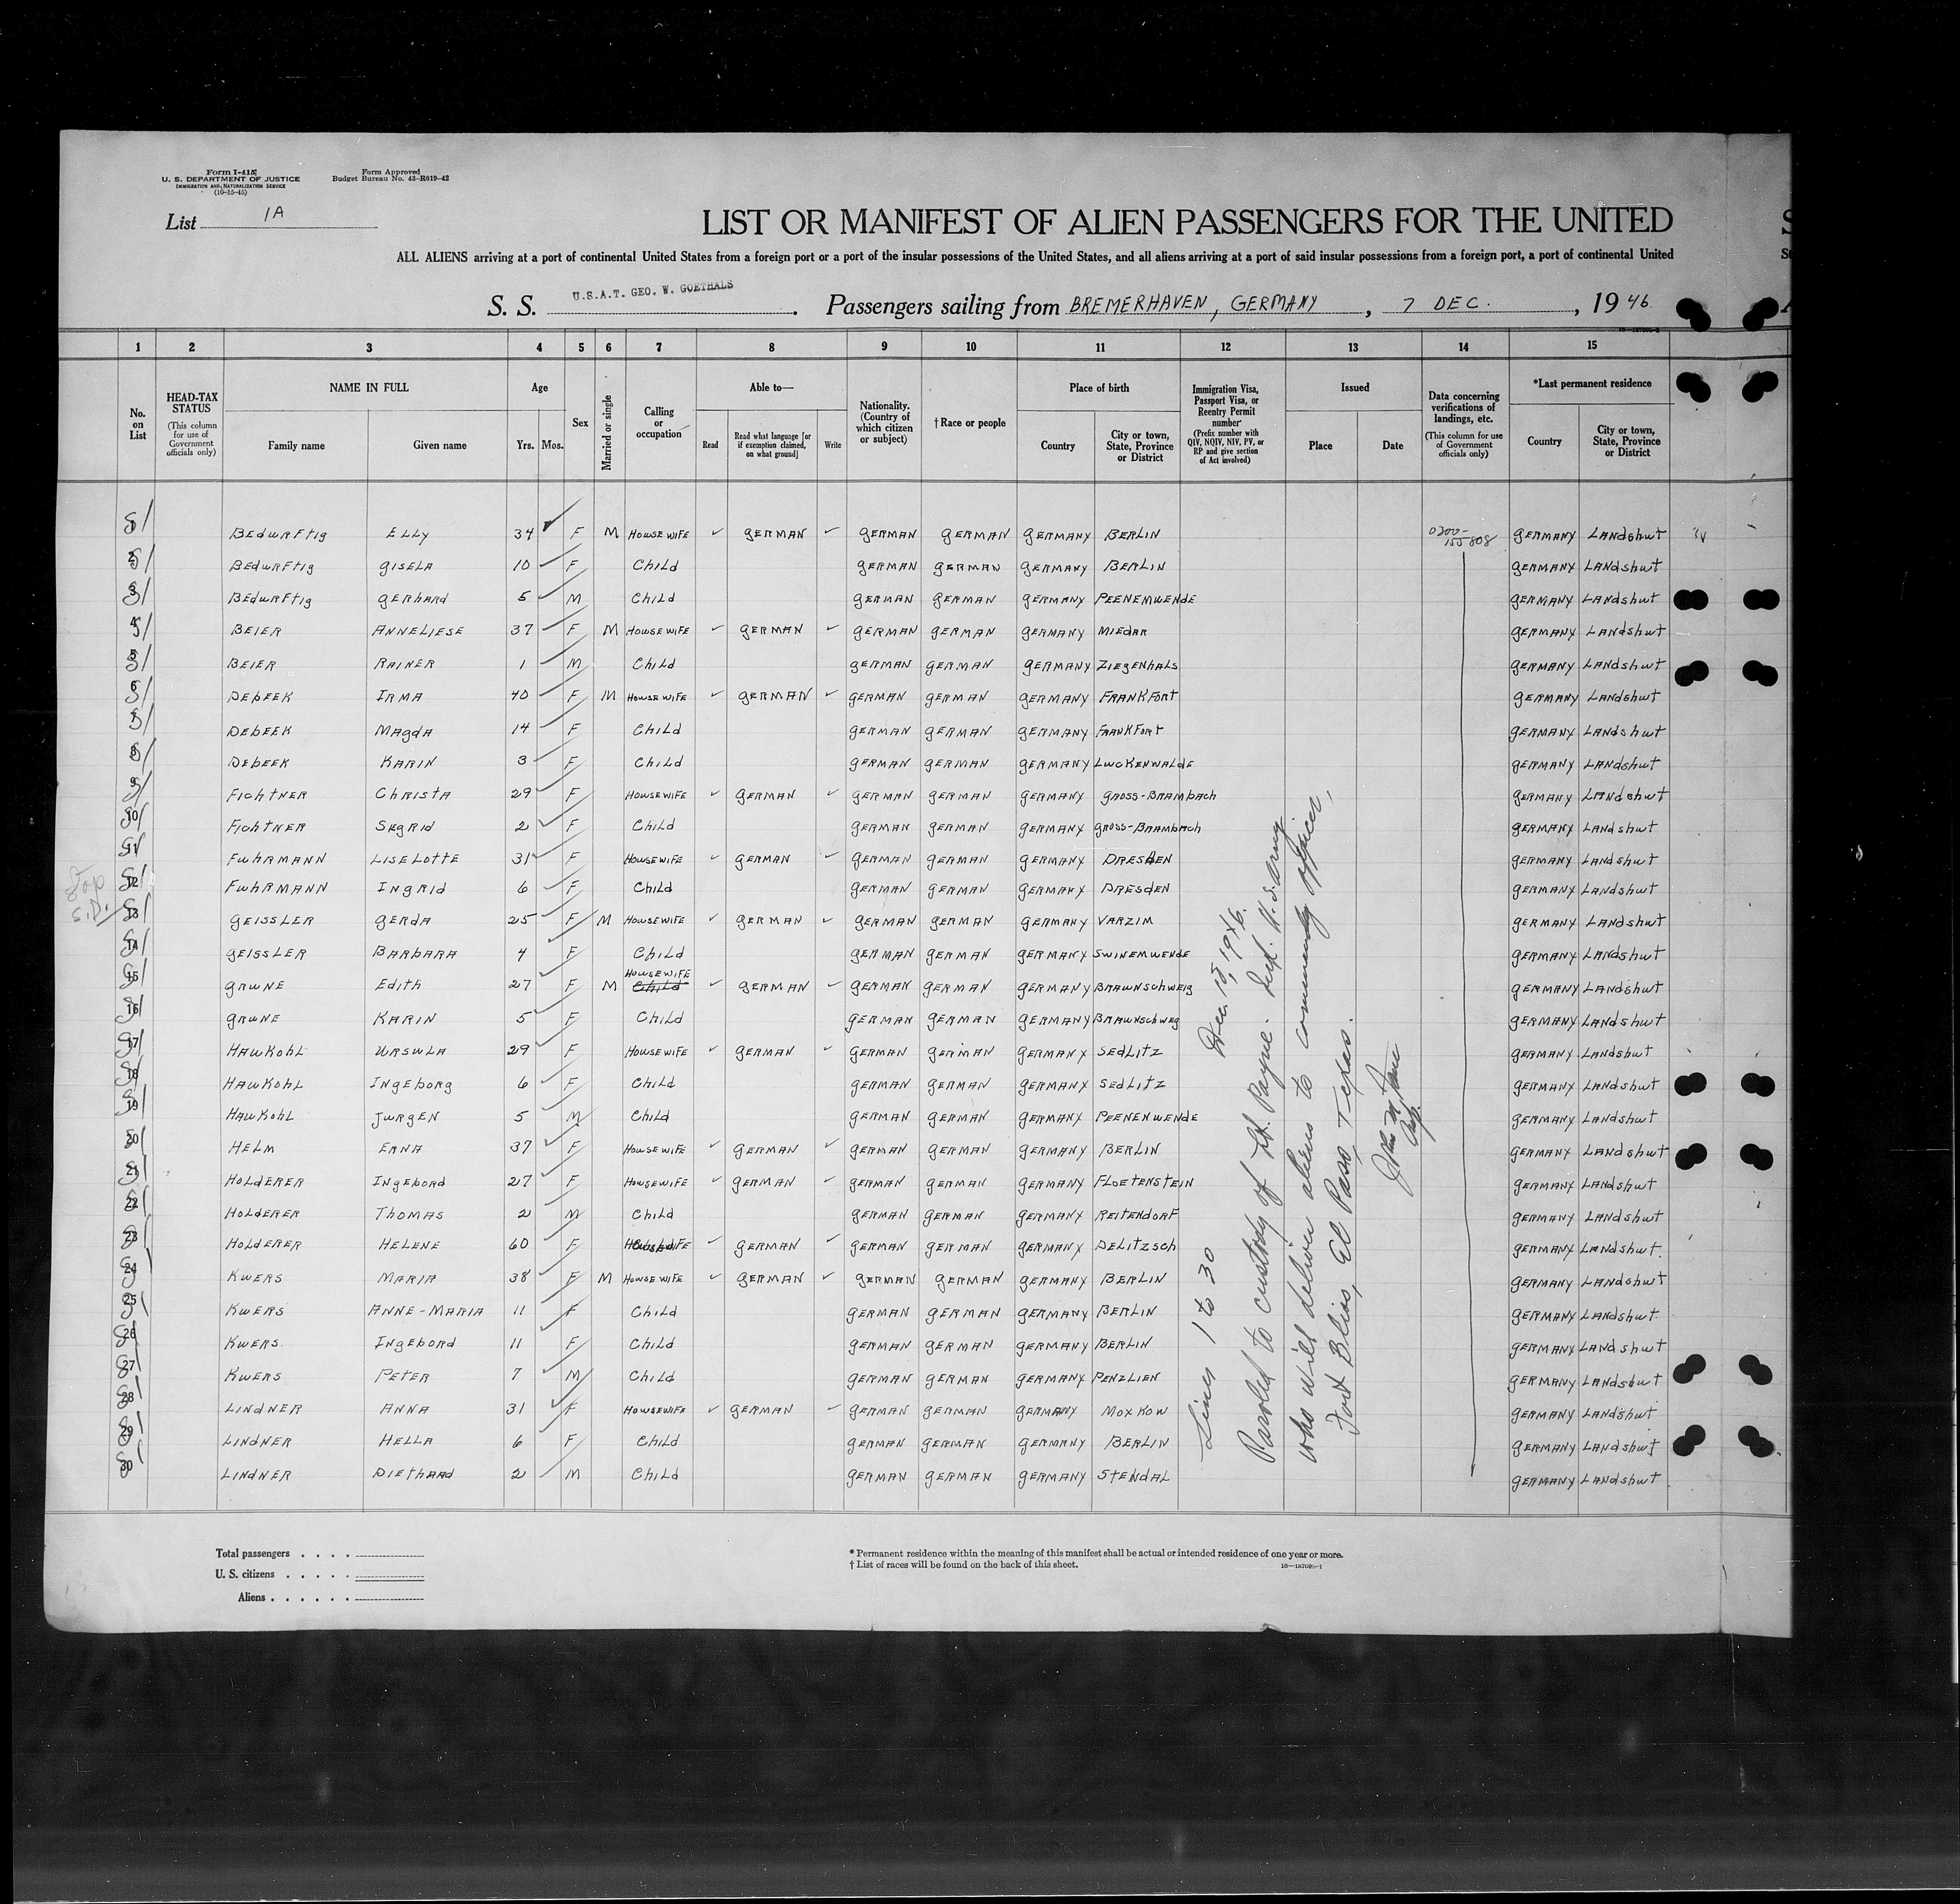 Form I-415
U. S. DEPARTMENT OF JUSTICE
IMMIGRATION AND NATURALIZATION SERVICE
(10-15-45)
Form Approved
Budget Bureau No. 43-R019-42
List 1A
LIST OR MANIFEST OF ALIEN PASSENGERS FOR THE UNITED
ALL ALIENS arriving at a port of continental United States from a foreign port or a port of the insular possessions of the United States, and all aliens arriving at a port of said insular possessions from a foreign port, a port of continental United
S. S. U.S.A.T. GEO. W. GOETHALS. Passengers sailing from BREMERHAVEN, GERMANY, 7 DEC., 1946
1 2 3 4 5 6 7 8 9 10 11 12 13 14 15
No. on List
HEAD-TAX STATUS (This column for use of Government officials only)
NAME IN FULL Family name Given name
Age Yrs. Mos.
Sex
Married or single
Calling or occupation
Able to— Read Read what language [or if exemption claimed, on what ground] Write
Nationality. (Country of which citizen or subject)
†Race or people
Place of birth Country City or town, State, Province or District
Immigration Visa, Passport Visa, or Reentry Permit number (Prefix number with QIV, NQIV, NIV, PV, or RP and give section of Act involved)
Issued Place Date
Data concerning verifications of landings, etc. (This column for use of Government officials only)
*Last permanent residence Country City or town, State, Province or District
1 BEdwRFtig ELLy 34 F M HOUSEWIFE ✓ GERMAN ✓ GERMAN GERMAN GERMANY BERLIN 0300-155808 GERMANY LANdshwt
2 BEdwRFtig GISELA 10 F Child GERMAN GERMAN GERMANY BERLIN GERMANY LANdshwt
3 BEdwRFtig GERHARd 5 M Child GERMAN GERMAN GERMANY PEENEMWENdE GERMANY LANdshwt
4 BEIER ANNELIESE 37 F M HOUSEWIFE ✓ GERMAN ✓ GERMAN GERMAN GERMANY MIEdAR GERMANY LANdshwt
5 BEIER RAINER 1 M Child GERMAN GERMAN GERMANY ZIEGENHALS GERMANY LANdshwt
6 DEbEEK IRMA 40 F M HOUSEWIFE ✓ GERMAN ✓ GERMAN GERMAN GERMANY FRANKFORT GERMANY LANdshwt
7 DEbEEK MAgdA 14 F Child GERMAN GERMAN GERMANY FRANKFORT GERMANY LANdshwt
8 DEbEEK KARIN 3 F Child GERMAN GERMAN GERMANY LWCKENWALdE GERMANY LANdshwt
9 FIChTNER ChRISTA 29 F HOUSEWIFE ✓ GERMAN ✓ GERMAN GERMAN GERMANY GROSS-BRAMbACh GERMANY LANdshwt
10 FIChTNER SEgRId 2 F Child GERMAN GERMAN GERMANY GROSS-BRAMbACh GERMANY LANdshwt
11 FWhRMANN LISELOTTE 31 F HOUSEWIFE ✓ GERMAN ✓ GERMAN GERMAN GERMANY DRESDEN GERMANY LANdshwt
12 FWhRMANN INgRId 6 F Child GERMAN GERMAN GERMANY DRESdEN GERMANY LANdshwt
13 GEISSLER GERDA 25 F M HOUSEWIFE ✓ GERMAN ✓ GERMAN GERMAN GERMANY VARZIM GERMANY LANdshwt
14 GEISSLER BARBARA 4 F Child GERMAN GERMAN GERMANY SWINEMWENdE GERMANY LANdshwt
15 GRWNE Edith 27 F M HOUSEWIFE Child ✓ GERMAN ✓ GERMAN GERMAN GERMANY BRAWNSchwEIg GERMANY LANdshwt
16 GRWNE KARIN 5 F Child GERMAN GERMAN GERMANY BRAWNSchwEg GERMANY LANdshwt
17 HAWKOhL WRSWLA 29 F HOUSEWIFE ✓ GERMAN ✓ GERMAN GERMAN GERMANY SEdLITZ GERMANY LANdshwt
18 HAWKOhL INgEbORg 6 F Child GERMAN GERMAN GERMANY SEdLITZ GERMANY LANdshwt
19 HAWKOhL JWRgEN 5 M Child GERMAN GERMAN GERMANY PEENENWENdE GERMANY LANdshwt
20 HELM ERNA 37 F HOUSEWIFE ✓ GERMAN ✓ GERMAN GERMAN GERMANY BERLIN GERMANY LANdshwt
21 HOLDERER INgEbORd 27 F HOUSEWIFE ✓ GERMAN ✓ GERMAN GERMAN GERMANY FLOETENSTEIN GERMANY LANdshwt
22 HOLDERER THOMAS 2 M Child GERMAN GERMAN GERMANY REITENdORF GERMANY LANdshwt
23 HOLDERER HELENE 60 F HOUSEWIFE ✓ GERMAN ✓ GERMAN GERMAN GERMANY DELITZSch GERMANY LANdshwt
24 KWERS MARIA 38 F M HOUSEWIFE ✓ GERMAN ✓ GERMAN GERMAN GERMANY BERLIN GERMANY LANdshwt
25 KWERS ANNE-MARIA 11 F Child GERMAN GERMAN GERMANY BERLIN GERMANY LANdshwt
26 KWERS INgEbORd 11 F Child GERMAN GERMAN GERMANY BERLIN GERMANY LANdshwt
27 KWERS PETER 7 M Child GERMAN GERMAN GERMANY PENZLIEN GERMANY LANdshwt
28 LINdNER ANNA 31 F HOUSEWIFE ✓ GERMAN ✓ GERMAN GERMAN GERMANY MOXKOW GERMANY LANdshwt
29 LINdNER HELLA 6 F Child GERMAN GERMAN GERMANY BERLIN GERMANY LANdshwt
30 LINdNER DIETHARd 2 M Child GERMAN GERMAN GERMANY STENdAL GERMANY LANdshwt
Lines 1 to 30 Dec. 18, 1946.
Paroled to custody of Lt. Payne. U. S. Army
who will deliver aliens to commanding officer,
Fort Bliss, El Paso, Texas.
Insp.
S.I.
Total passengers
U. S. citizens
Aliens
* Permanent residence within the meaning of this manifest shall be actual or intended residence of one year or more.
† List of races will be found on the back of this sheet.